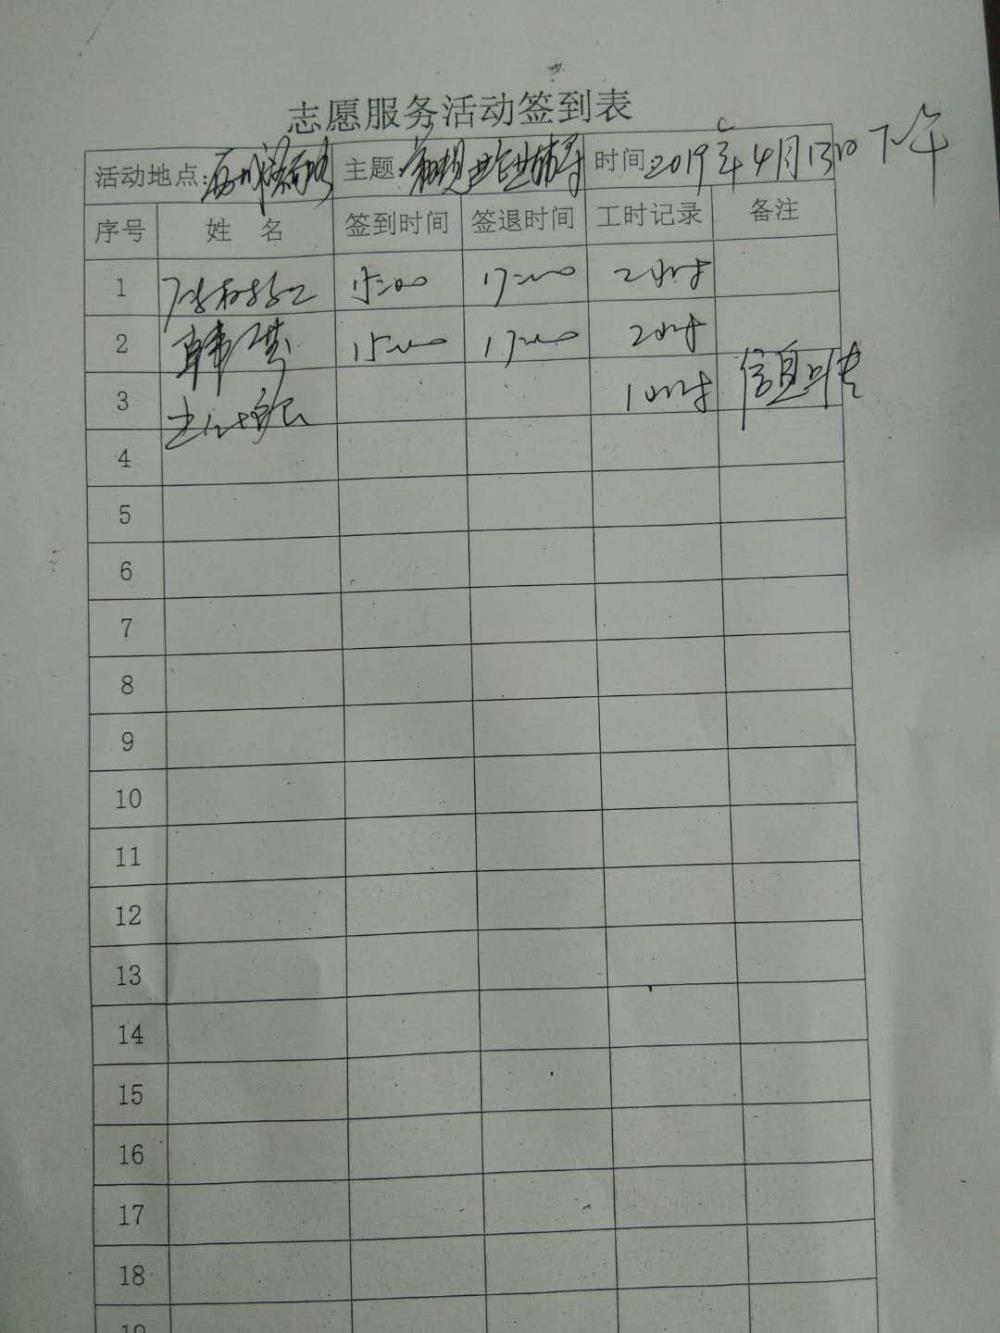 志愿服务活动签到表
活动地点: 主题: 时间: 2019年4月13日下午
序号 姓 名 签到时间 签退时间 工时记录 备注
1 15:00 17:00 2小时
2 韩 15:00 17:00 2小时
3 1小时 信息上传
4
5
6
7
8
9
10
11
12
13
14
15
16
17
18
19